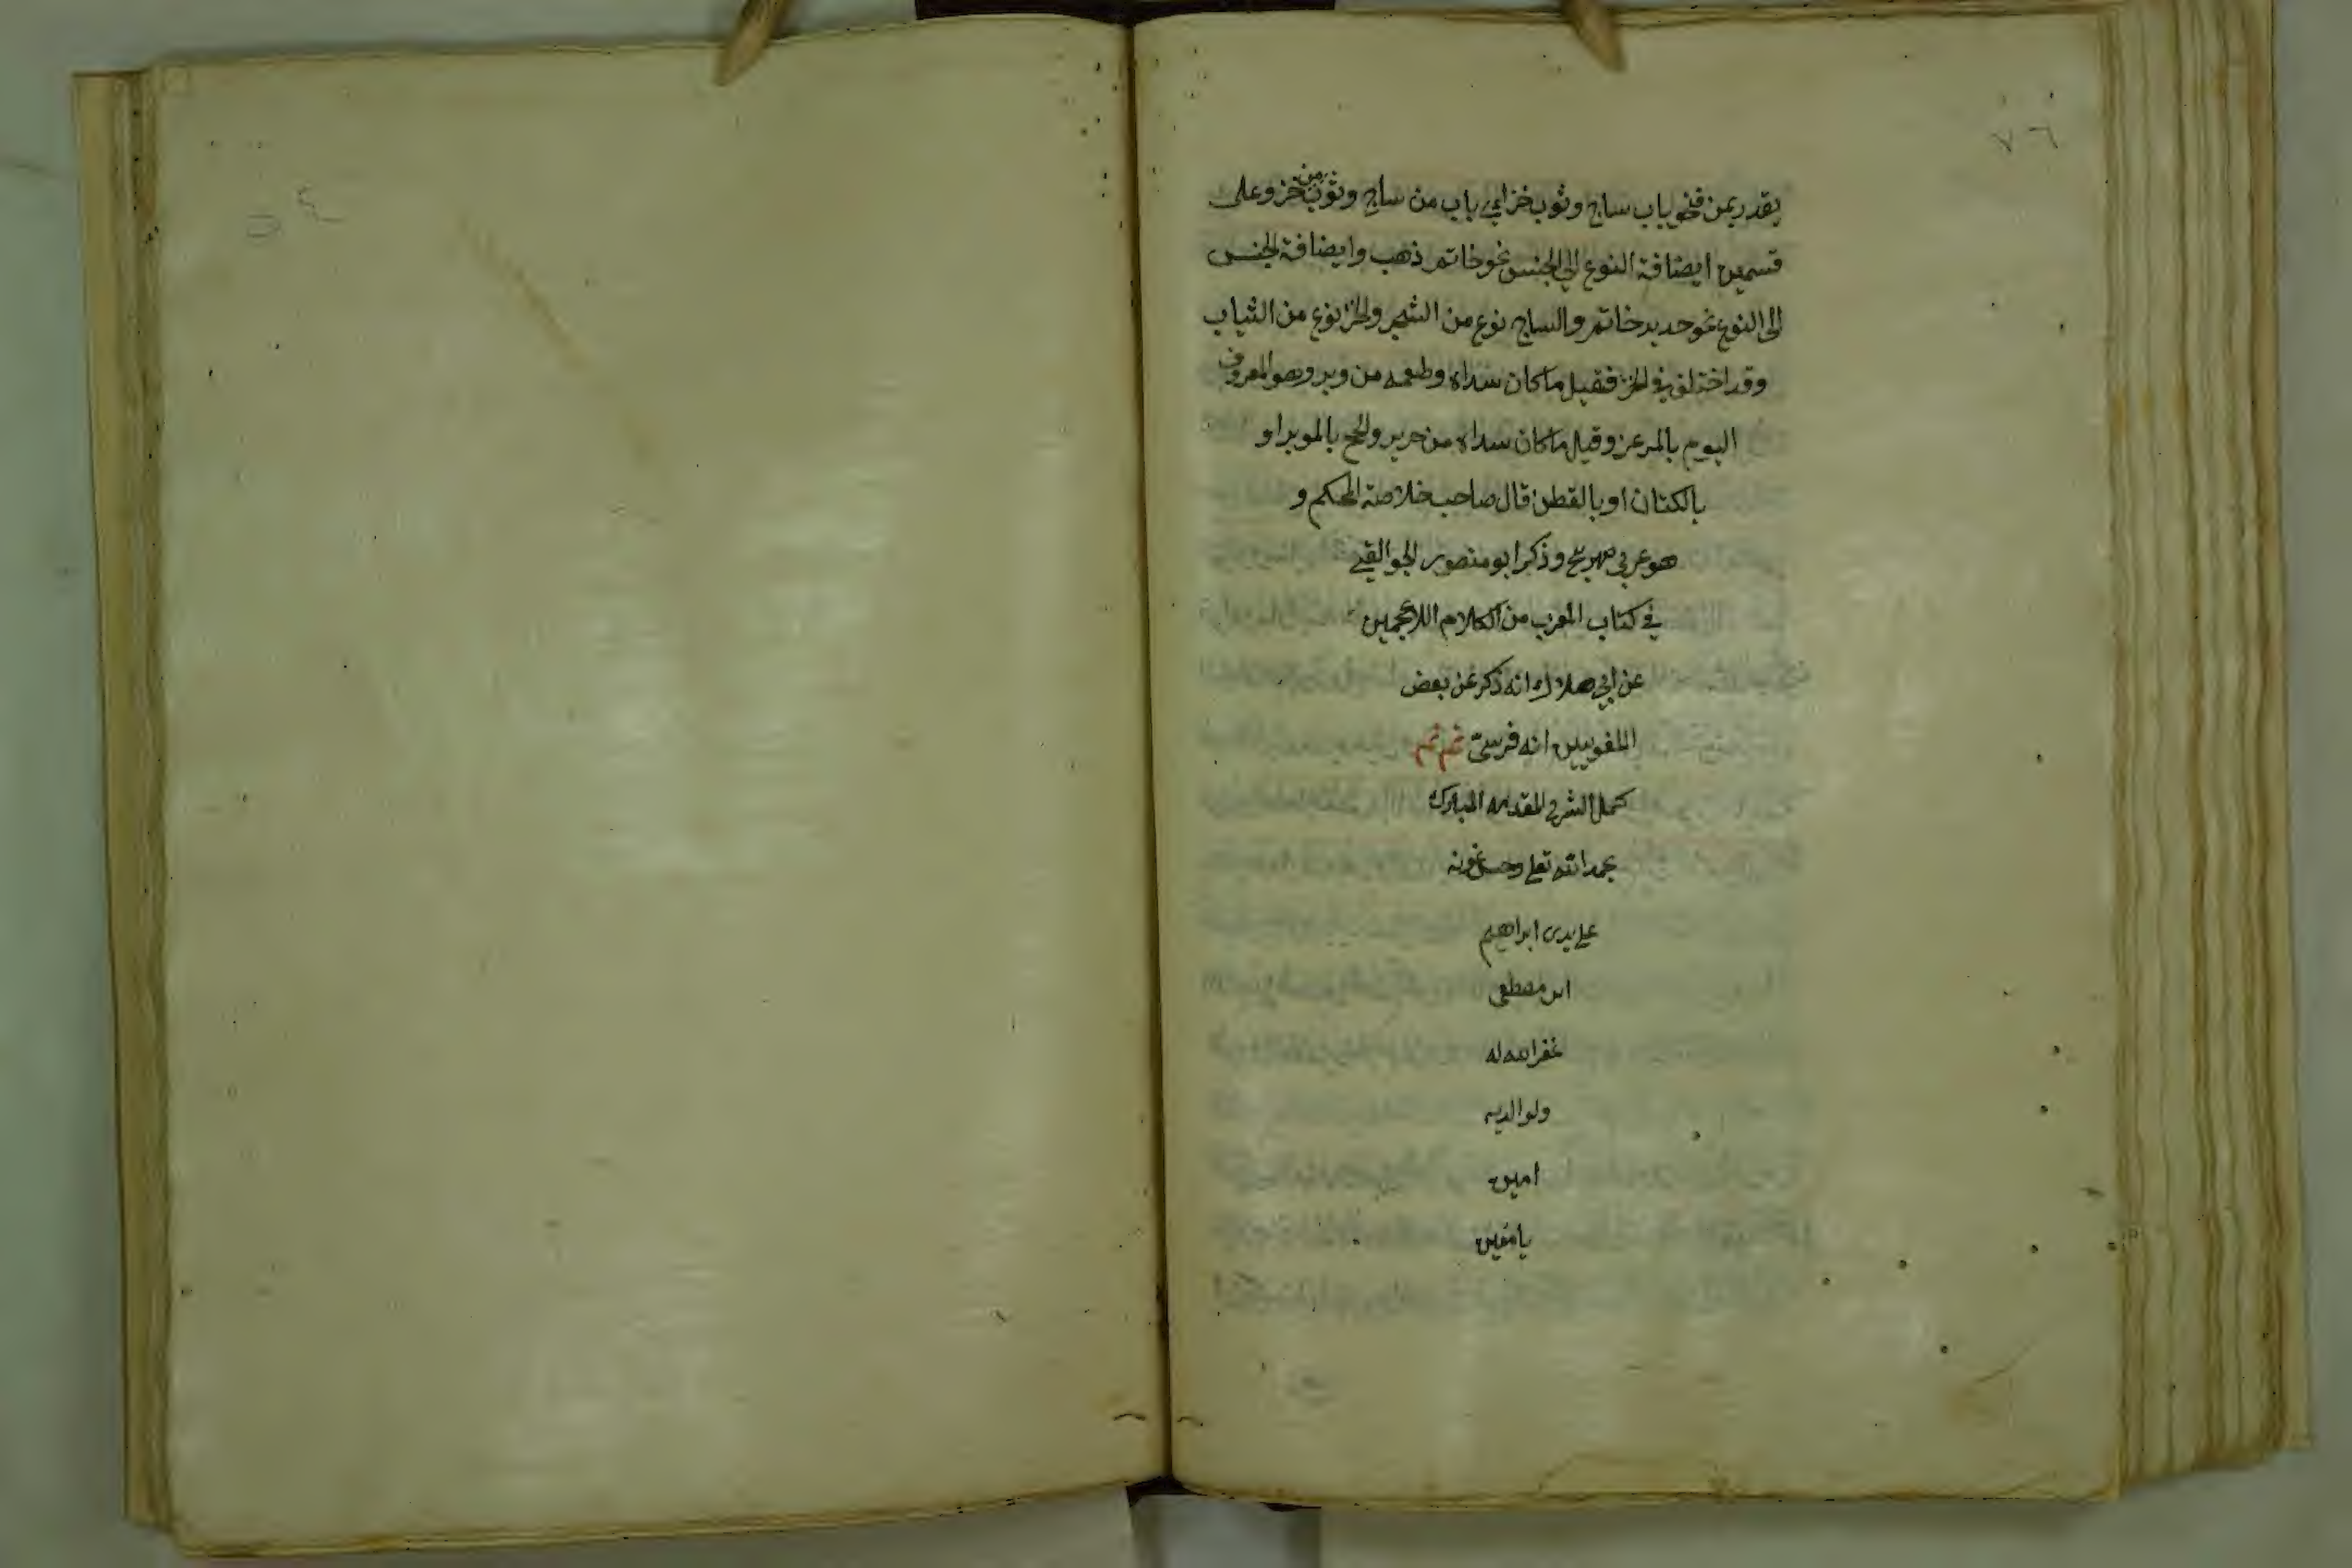 ٧٦
يقدر بمن فنحو باب ساج وثوب خز اي باب من ساج وثوب من خز وعلى
قسمين ايضافة النوع الى الجنس نحو خاتم ذهب وايضافة الجنس
الى النوع نحو حديد خاتم والساج نوع من الشجر والخز نوع من الثياب
وقد اختلف في الخز فقيل ما كان سداه وطعمه من وبر وهو المعروف
اليوم بالمرعز وقيل ما كان سداه من حرير والحم بالموبر او
بالكتان او بالقطن قال صاحب خلاصة المحكم و
هو عربي صريح وذكر ابو منصور الجواليقي
في كتاب المعرب من الكلام اللاعجمين
عن ابي هلال انه ذكر عن بعض
اللغويين انه فرسيّ تم تم
كمل الشرح المقدمه المبارك
بحمد الله تعلى وحسن عونه
على يدى ابراهيم
ابن مصطفى
غفر الله له
ولوالديه
امين
يا معين